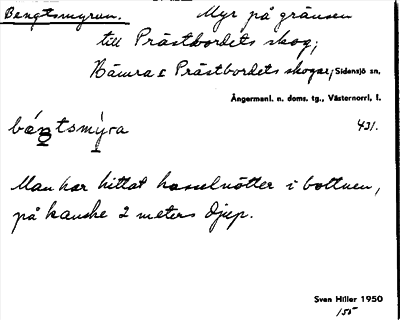 Bengtsmyran. Myr på gränsen
till Prästbordets skog;
Bäwra & Prästbordets skogar; Sidensjö sn,
Ångermanl. n. doms. tg., Västernorrl. l.
431.
Man har hittat hasselnötter i bottnen,
på kanske 2 meters djup.
Sven Hiller 1950
155